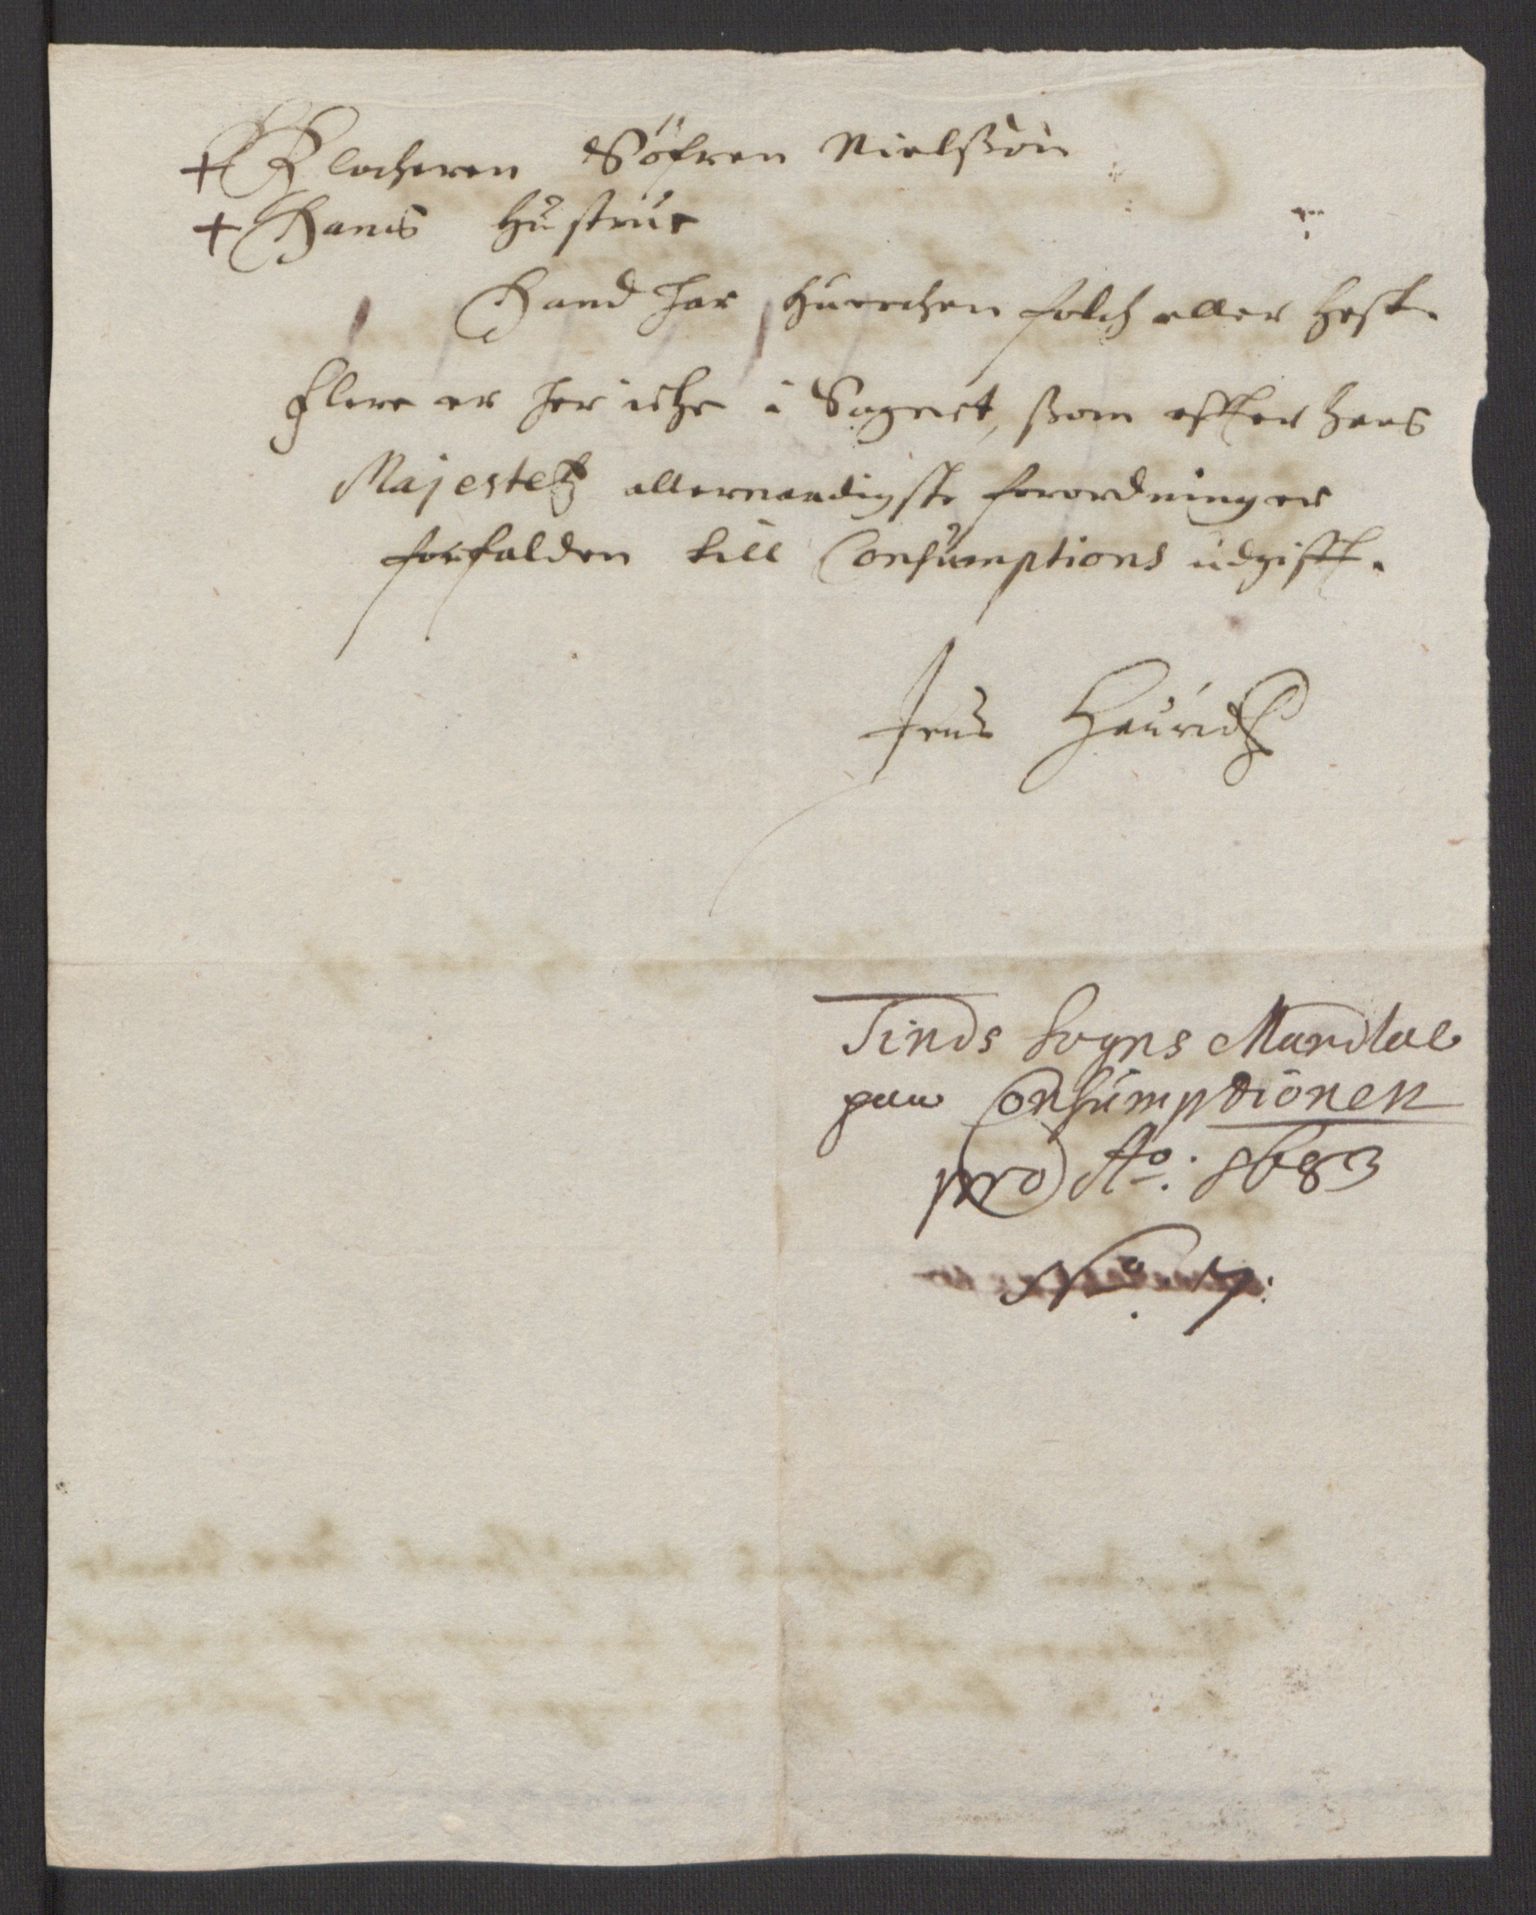 + Klocheren Söfren Nielßön
+ Hans Hustrue
Hand har huerchen folch eller hest.
Flere er her iche i Sognet, ßom effter hans
Majestetz allernaadigste forordning er
forfalden till Consumptions udgifft.
Jens Hauridtz
Tinds Sogns Mandtal
paa Consumptionen
pro Ao: 1683
No. 7: